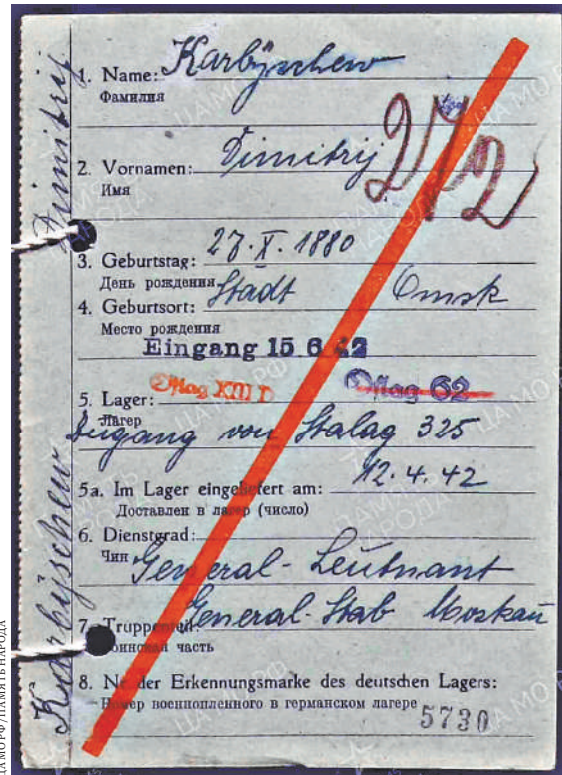 1. Name: Karbyschew
Фамилия
272
2. Vornamen: Dimitrij
Имя
3. Geburtstag: 27.X.1880
День рождения
4. Geburtsort: Stadt Omsk
Место рождения
Eingang 15 6 42
Oflag XIII D Oflag 62
5. Lager:
Лагерь
Zugang von Stalag 325
5a. Im Lager eingeliefert am: 12.4.42
Доставлен в лагер (число)
6. Dienstgrad:
Чин
General-Leutnant
General-Stab Moskau
7. Truppenteil:
Воинская часть
8. Nr. der Erkennungsmarke des deutschen Lagers:
Номер военнопленного в германском лагере
5730
Karbyschew Dimitrij
ЦАМО РФ/ПАМЯТЬ НАРОДА